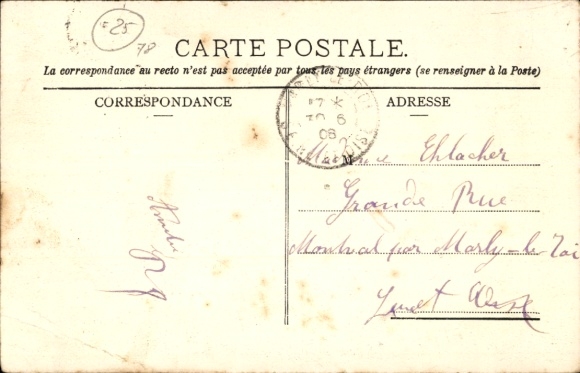 25
78
CARTE POSTALE.
La correspondance au recto n'est pas acceptée par tous les pays étrangers (se renseigner à la Poste)
CORRESPONDANCE
ADRESSE
17 *
30 6
08
M Ehlacher
Grande Rue
par Marly-le-Roi
Seine et Oise